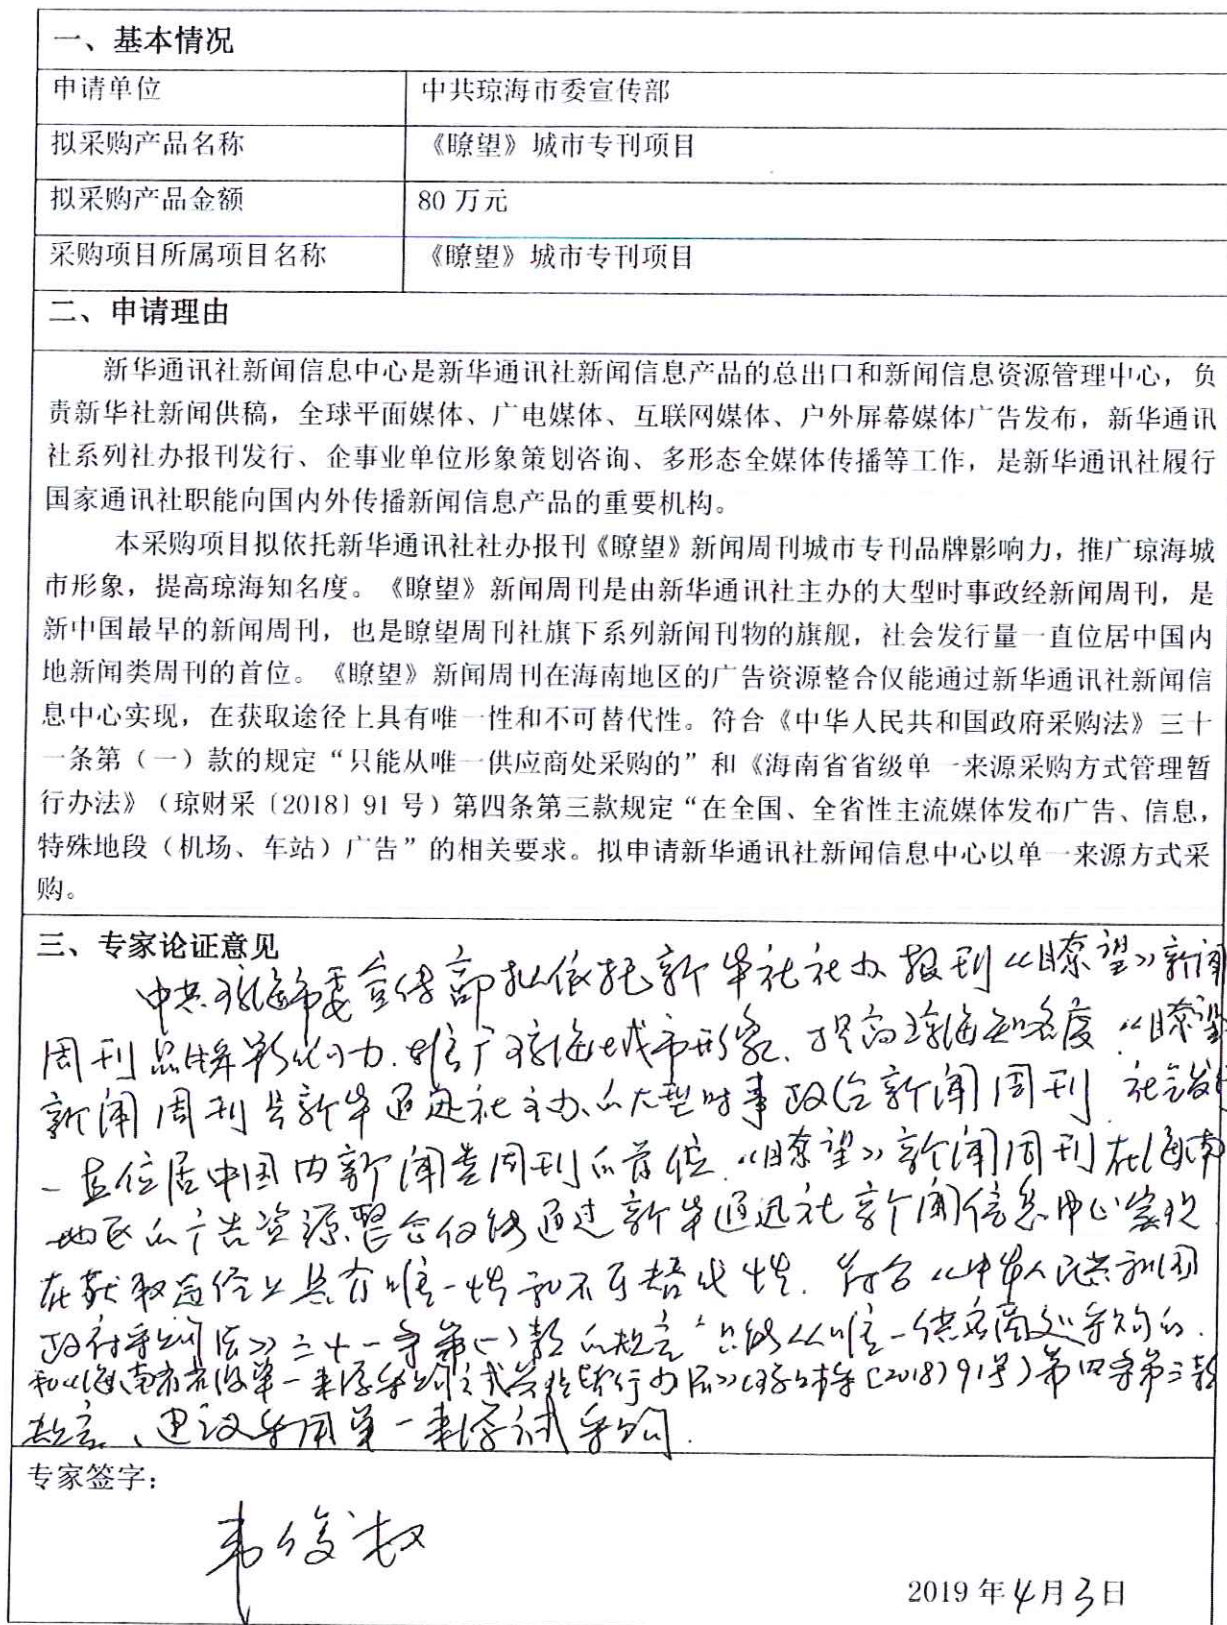 一、基本情况
申请单位 中共琼海市委宣传部
拟采购产品名称 《瞭望》城市专刊项目
拟采购产品金额 80 万元
采购项目所属项目名称 《瞭望》城市专刊项目
二、申请理由
新华通讯社新闻信息中心是新华通讯社新闻信息产品的总出口和新闻信息资源管理中心，负
责新华社新闻供稿，全球平面媒体、广电媒体、互联网媒体、户外屏幕媒体广告发布，新华通讯
社系列社办报刊发行、企事业单位形象策划咨询、多形态全媒体传播等工作，是新华通讯社履行
国家通讯社职能向国内外传播新闻信息产品的重要机构。
本采购项目拟依托新华通讯社社办报刊《瞭望》新闻周刊城市专刊品牌影响力，推广琼海城
市形象，提高琼海知名度。《瞭望》新闻周刊是由新华通讯社主办的大型时事政经新闻周刊，是
新中国最早的新闻周刊，也是瞭望周刊社旗下系列新闻刊物的旗舰，社会发行量一直位居中国内
地新闻类周刊的首位。《瞭望》新闻周刊在海南地区的广告资源整合仅能通过新华通讯社新闻信
息中心实现，在获取途径上具有唯一性和不可替代性。符合《中华人民共和国政府采购法》三十
一条第（一）款的规定“只能从唯一供应商处采购的”和《海南省省级单一来源采购方式管理暂
行办法》（琼财采〔2018〕91 号）第四条第三款规定“在全国、全省性主流媒体发布广告、信息，
特殊地段（机场、车站）广告”的相关要求。拟申请新华通讯社新闻信息中心以单一来源方式采
购。
三、专家论证意见
中共琼海市委宣传部拟依托新华社社办报刊《瞭望》新闻
周刊品牌影响力.推广琼海城市形象、提高琼海知名度《瞭望
新闻周刊是新华通迅社主办的大型时事政经新闻周刊 社会发行
一直位居中国内新闻类周刊的首位.《瞭望》新闻周刊在海南
地区的广告资源整合仅能通过新华通迅社新闻信息中心实现
在获取途径上具有唯一性和不可替代性. 符合《中华人民共和国
政府采购法》三十一条第(一)款的规定“只能从唯一供应商处采购的.
和《海南省省级单一来源采购方式管理暂行办法》(琼财采[2018]91号)第四条第三款
规定、建议采用单一来源方式采购.
专家签字：
2019 年 4 月 3 日